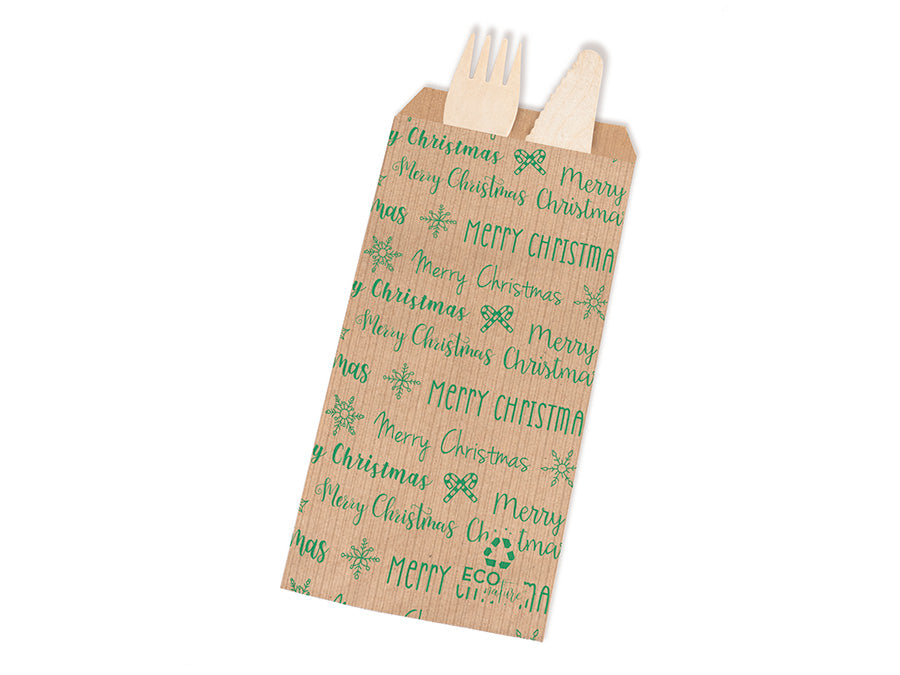 y Christmas
Merry Christmas
Merry
Christma
mas
MERRY CHRISTMA
Merry Christmas
y Christmas
Merry Christmas
Merry
Christma
mas
MERRY CHRISTMA
Merry Christmas
y Christmas
Merry Christmas
Merry
Ch tma
mas
MERRY
MA
ECO
nature